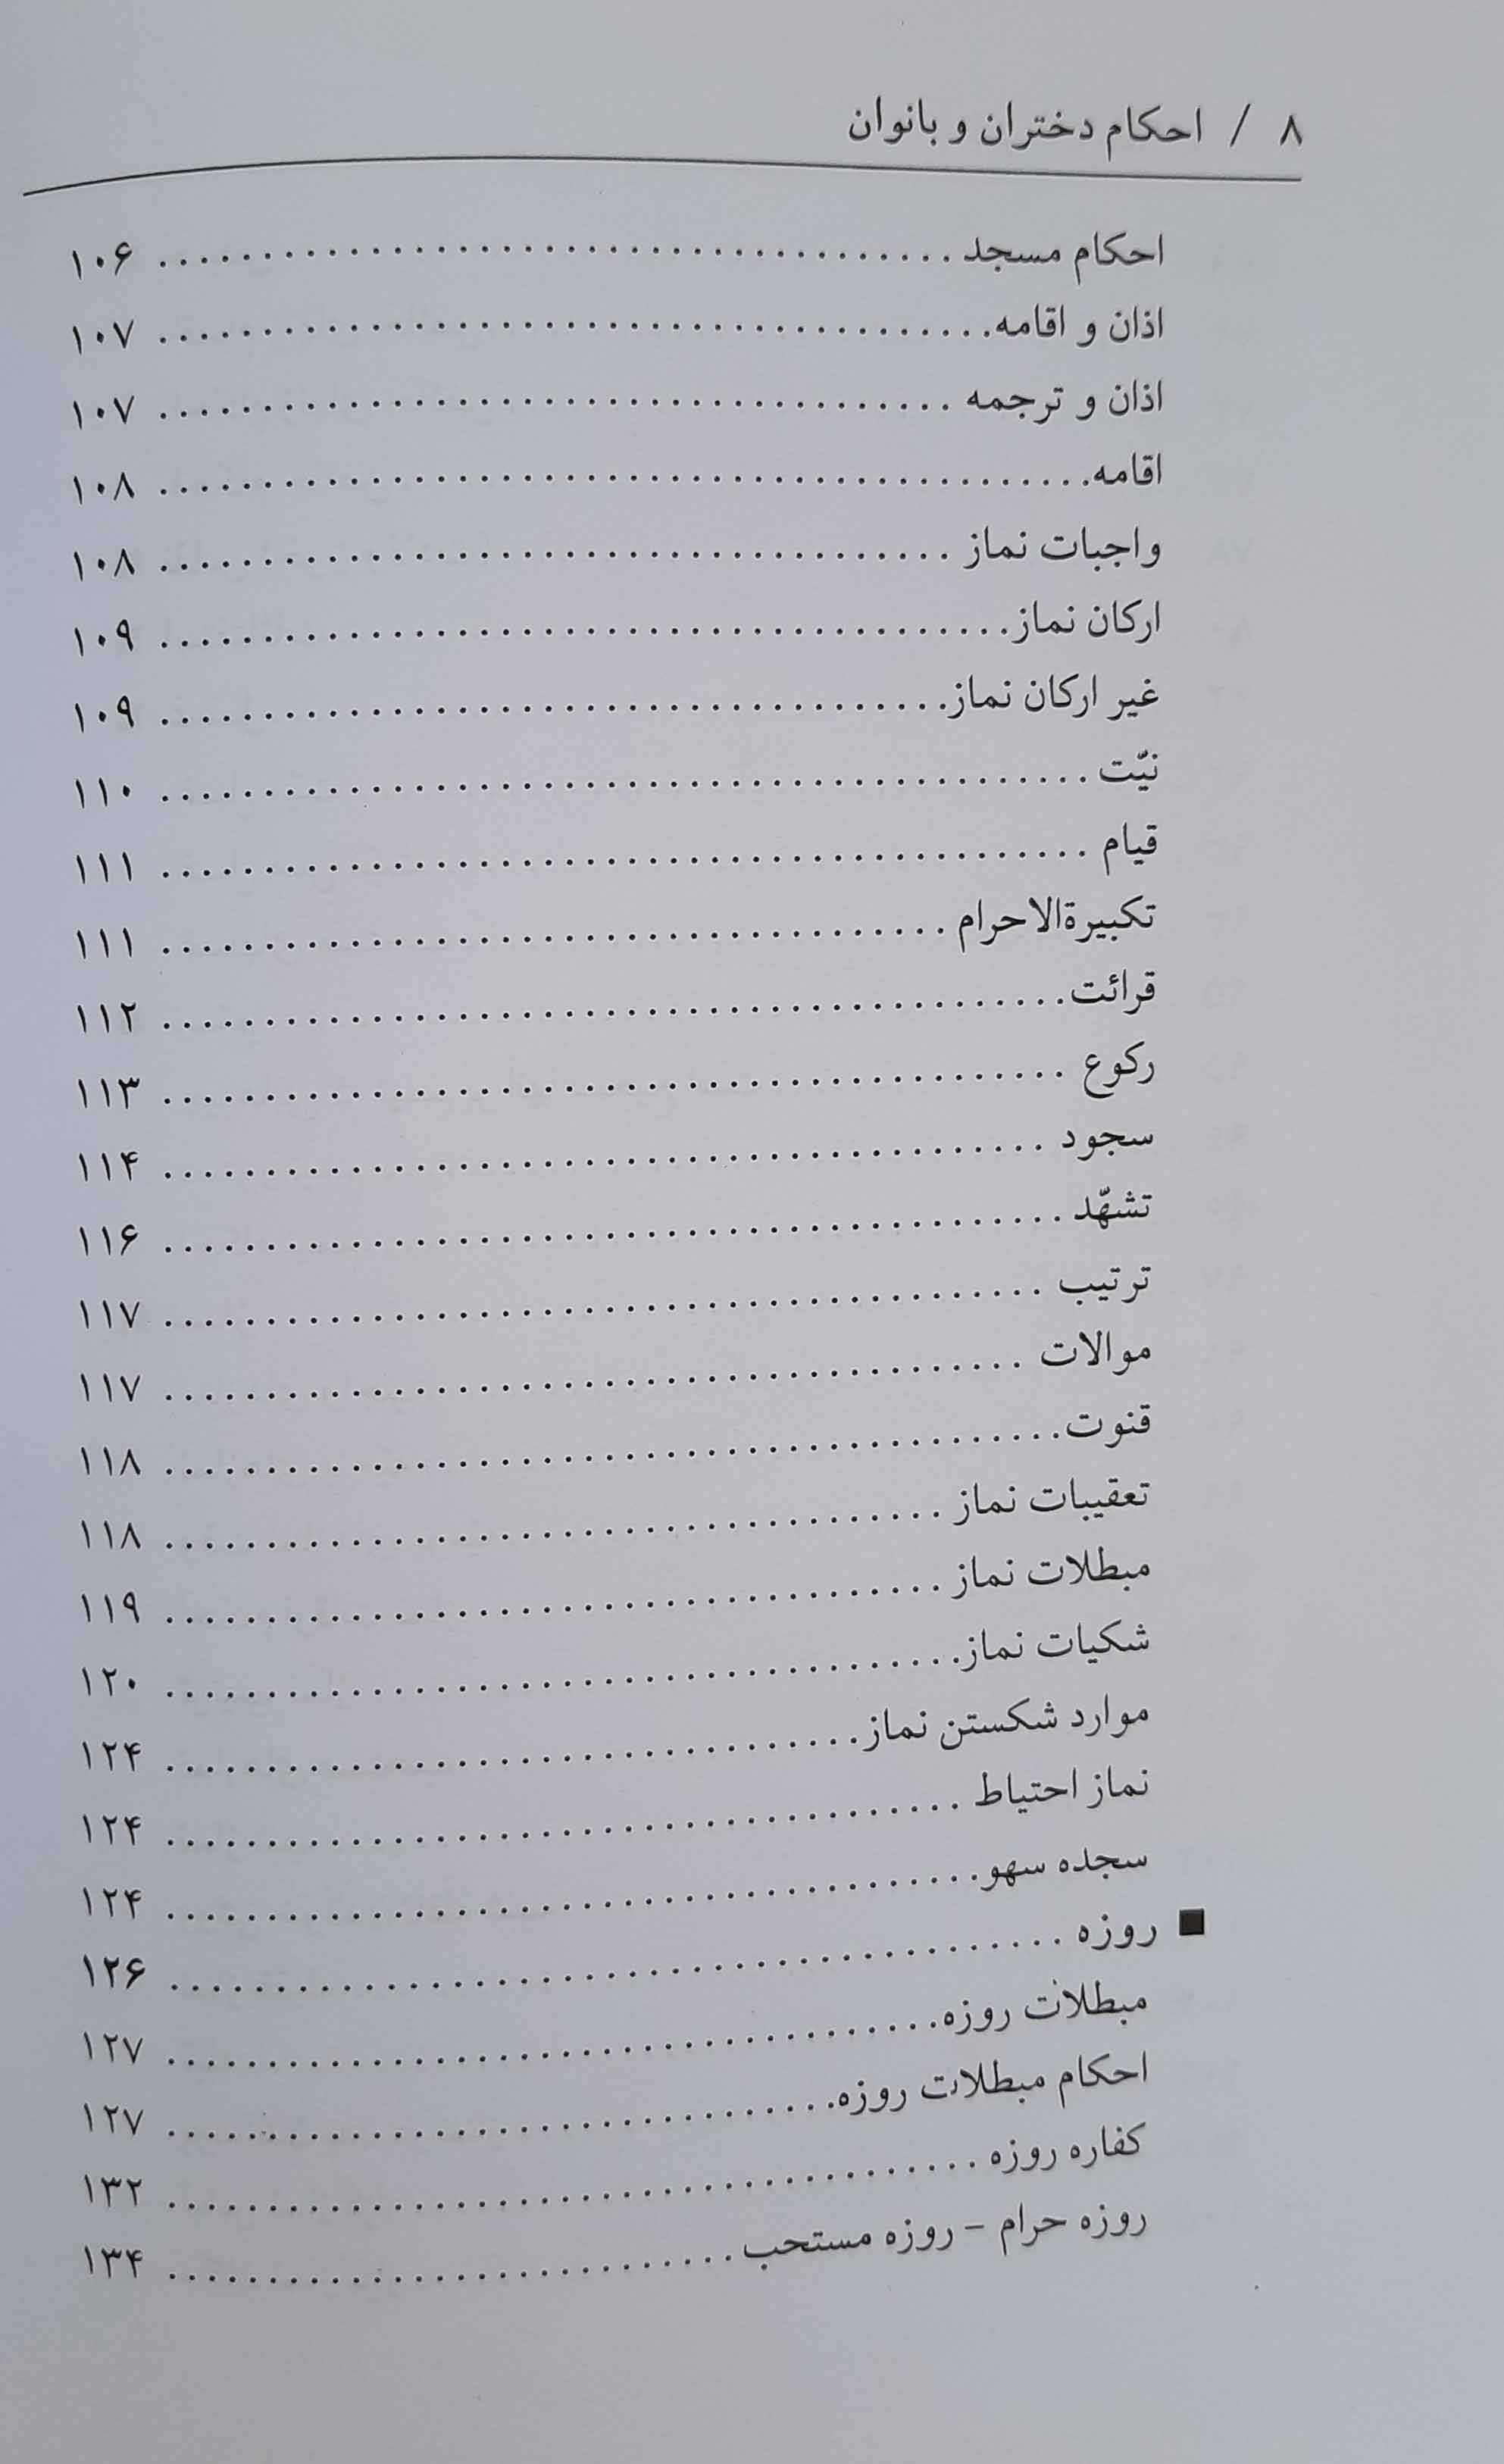 ۸ / احکام دختران و بانوان
احکام مسجد ........................................ ۱۰۶
اذان و اقامه ........................................ ۱۰۷
اذان و ترجمه ........................................ ۱۰۷
اقامه ........................................ ۱۰۸
واجبات نماز ........................................ ۱۰۸
ارکان نماز ........................................ ۱۰۹
غیر ارکان نماز ........................................ ۱۰۹
نیّت ........................................ ۱۱۰
قیام ........................................ ۱۱۱
تکبیرةالاحرام ........................................ ۱۱۱
قرائت ........................................ ۱۱۲
رکوع ........................................ ۱۱۳
سجود ........................................ ۱۱۴
تشهّد ........................................ ۱۱۶
ترتیب ........................................ ۱۱۷
موالات ........................................ ۱۱۷
قنوت ........................................ ۱۱۸
تعقیبات نماز ........................................ ۱۱۸
مبطلات نماز ........................................ ۱۱۹
شکیات نماز ........................................ ۱۲۰
موارد شکستن نماز ........................................ ۱۲۴
نماز احتیاط ........................................ ۱۲۴
سجده سهو ........................................ ۱۲۴
■ روزه ........................................ ۱۲۶
مبطلات روزه ........................................ ۱۲۷
احکام مبطلات روزه ........................................ ۱۲۷
کفاره روزه ........................................ ۱۳۲
روزه حرام - روزه مستحب ........................................ ۱۳۴